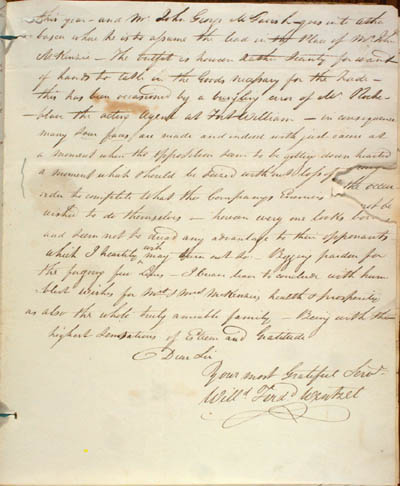 this year - and Mr. John George McTavish goes into atha
basca where he is to assume the lead in the Place of Mr. Robt
McKenzie - The outfit is however rather scanty for want
of hands to take in the Goods necessary for the trade -
this has been occasioned by a bungling error of Mr Roche-
blave the acting Agent at Fort William - in consequence
many sour faces are made and indeed with just cause at
a moment when the opposition seem to be getting down hearted
a moment which should be seized with out loss of
order to complete what the Companys Enemies not be
wished to do themselves - however every one looks
and seem not to dread any advantage to their opponants
which I heartily wish may turn out so. - Begging pardon for
the forgoing few lines - I beg leave to conclude with hum
blest wishes for Mr. & Mrs. McKenzies health & prosperity
as also the whole truly amiable family - Being with the
highest Sensations of Esteem and Gratitude
Dear Sir
Your most Grateful Servt.
Willd. Ferdd Wentzel